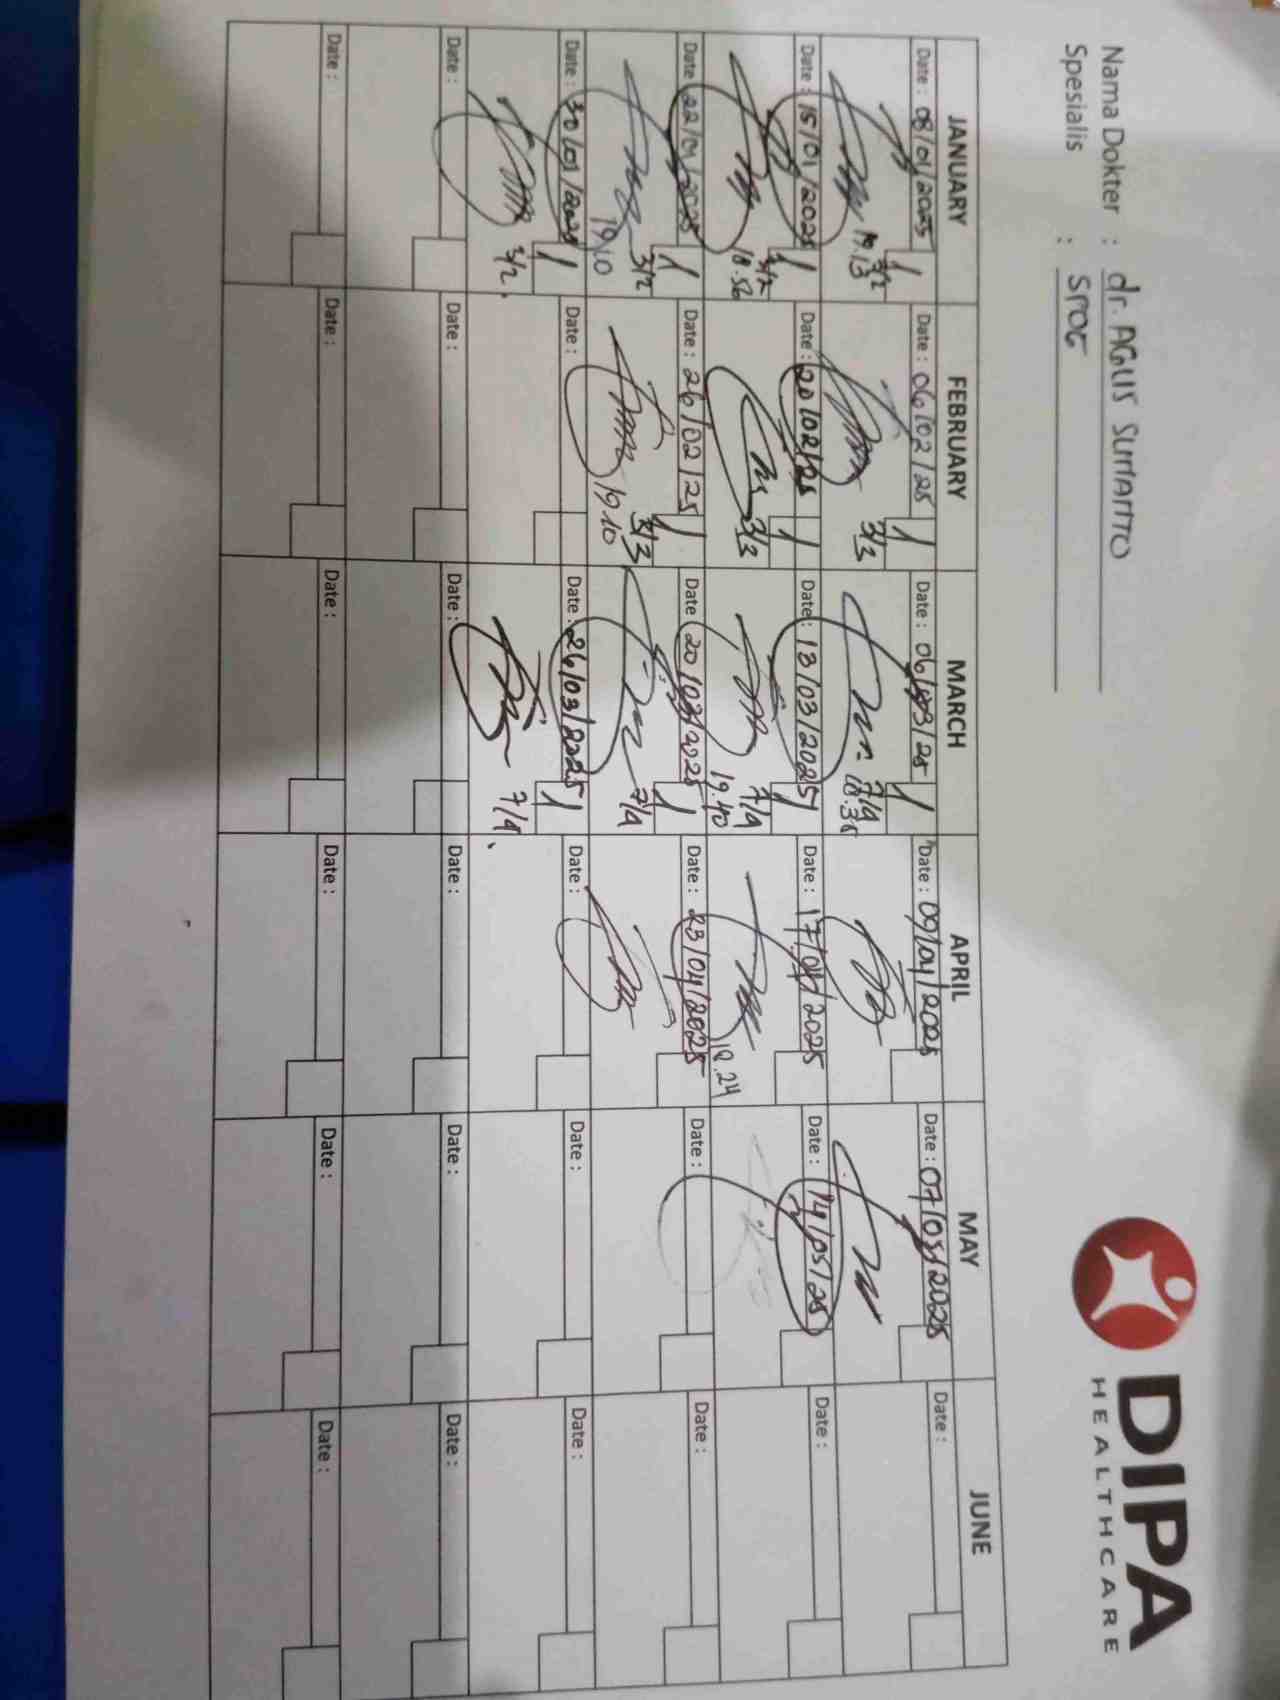 DIPA
HEALTHCARE
Nama Dokter : dr. AGUS SUMANTO
Spesialis : SPOG
JANUARY FEBRUARY MARCH APRIL MAY JUNE
Date : 08/01/2025 1 Date : 06/02/25 1 Date : 06/03/25 1 Date : 09/04/2025 Date : 07/05/2025 Date :
3/2 19.13 3/3 7/4 18.35
Date : 15/01/2025 1 Date : 20/02/25 1 Date : 13/03/2025 1 Date : 17/04/2025 Date : 14/05/25 Date :
3/2 18.56 3/3 7/4 19.40 18.24
Date : 22/01/2025 1 Date : 26/02/25 1 Date : 20/03/2025 1 Date : 23/04/2025 Date : Date :
3/2 19.10 3/3 19.10 7/4
Date : 30/01/2025 1 Date : Date : 26/03/2025 1 Date : Date : Date :
3/2 7/4
Date : Date : Date : Date : Date : Date :
Date : Date : Date : Date : Date : Date :